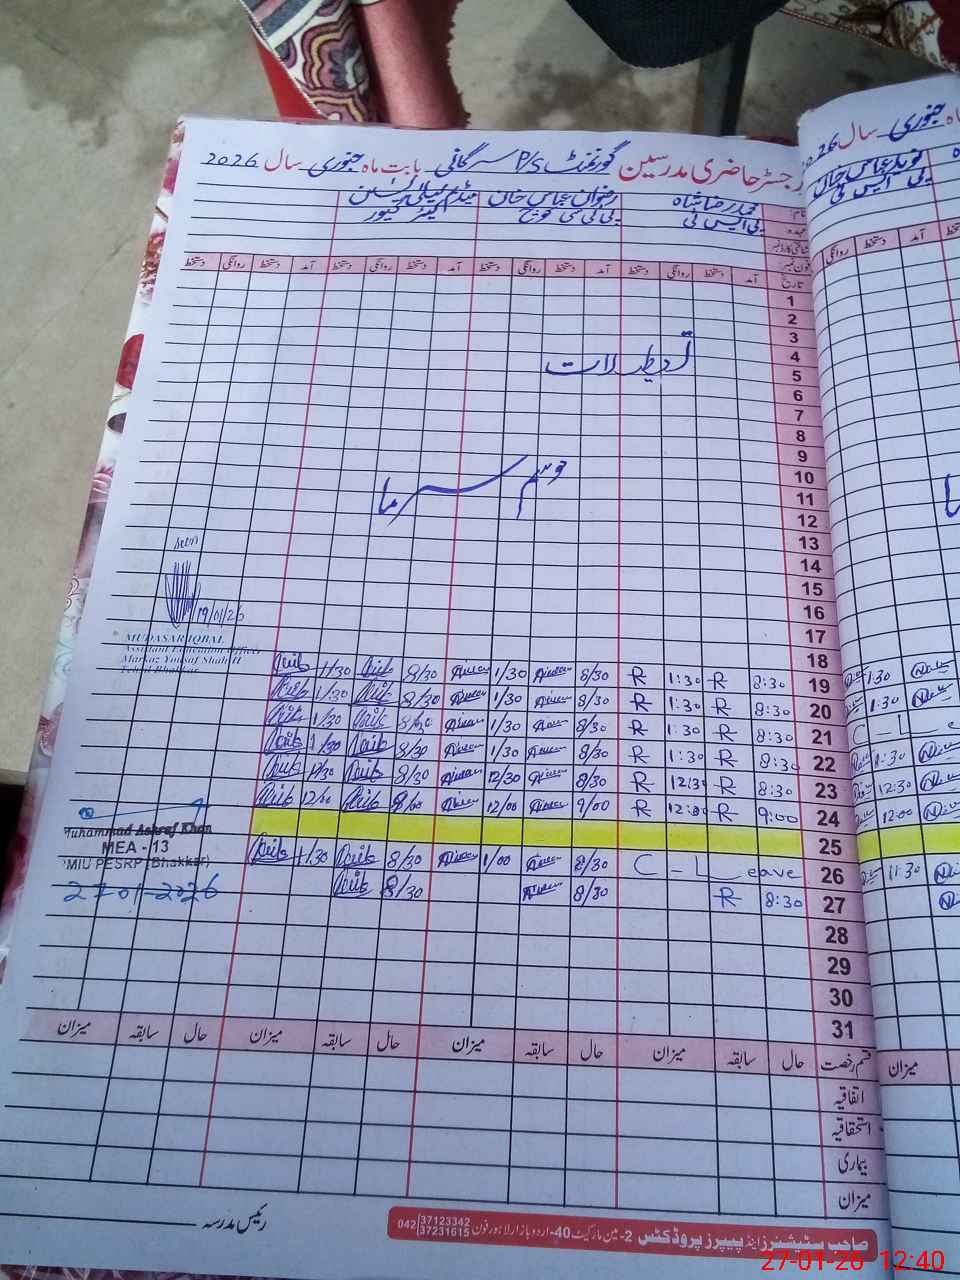 رجسٹر حاضری مدرسین گورنمنٹ P/S سرگانی بابت ماہ جنوری سال 2026
محمد رضا شاہ رضوان عباس خان میڈم
پی ایس ٹی پی ٹی سی کوچ کیئر گیور
نام
عہدہ
شناختی کارڈ نمبر
فون نمبر
تاریخ آمد دستخط روانگی دستخط آمد دستخط روانگی دستخط آمد دستخط روانگی دستخط آمد دستخط روانگی دستخط
1
2
3
4
تعطیلات
5
6
7
8
9
10
موسم سرما
11
12
13
14
15
16
17
Seen
19/01/26
MUDASAR IQBAL
Assistant Education Officer
Markaz Yousaf Shah II
Tehsil Bhakkar
18
19 8:30 R 1:30 R 8/30 1/30 8/30 1/30
20 8:30 R 1:30 R 8/30 1/30 8/30 1/30
21 8:30 R 1:30 R 8/30 1/30 8/30 1/30
22 8:30 R 1:30 R 8/30 1/30 8/30 1/30
23 8:30 R 12:30 R 8/30 12/30 8/30 12/30
24 9:00 R R 9/00 12/00 12/00
25
26 C - Leave 8/30 1/00 8/30 1/30
27 8:30 R 8/30 8/30
28
29
30
31
Muhammad Ashraf Khan
MEA - 13
MIU PESRP (Bhakkar)
27-01-2026
قسم رخصت حال سابقہ میزان حال سابقہ میزان حال سابقہ میزان حال سابقہ میزان
اتفاقیہ
استحقاقیہ
بیماری
میزان
رئیس مدرسہ
صاحب سٹیشنرز اینڈ پیپرز پروڈکٹس 2- مین مارکیٹ 40- اردو بازار لاہور فون 042 37123342
37231615
سال جنوری
نوید عباس خان
پی ایس ٹی
دستخط روانگی
1:30
1:30
C - L e
1:30
12:30
12:00
11:30
میزان
27-01-26 12:40